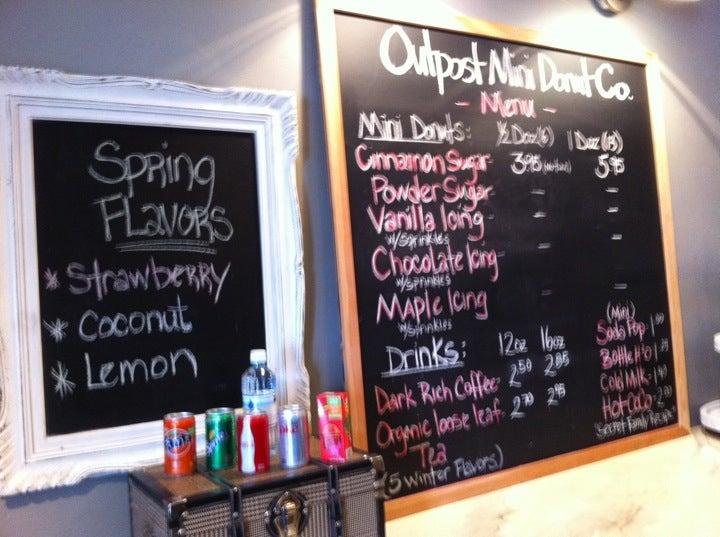 Spring
Flavors
* Strawberry
* Coconut
* Lemon
Outpost Mini Donut Co.
- Menu -
Mini Donuts: ½ Doz (6) 1 Doz (13)
Cinnamon Sugar 3.95 5.95
Powder Sugar - -
Vanilla Icing - -
w/sprinkles
Chocolate Icing - -
w/sprinkles
Maple Icing - -
w/sprinkles
Drinks: 12oz 16oz
Dark Rich Coffee 2.50 2.85
Organic loose leaf 2.70 2.95
Tea
(5 Winter Flavors)
(Mini)
Soda Pop
Bottle H2O
Cold Milk
Hot CoCo 2.00
"Secret Family Recipe"
Fanta
Sprite